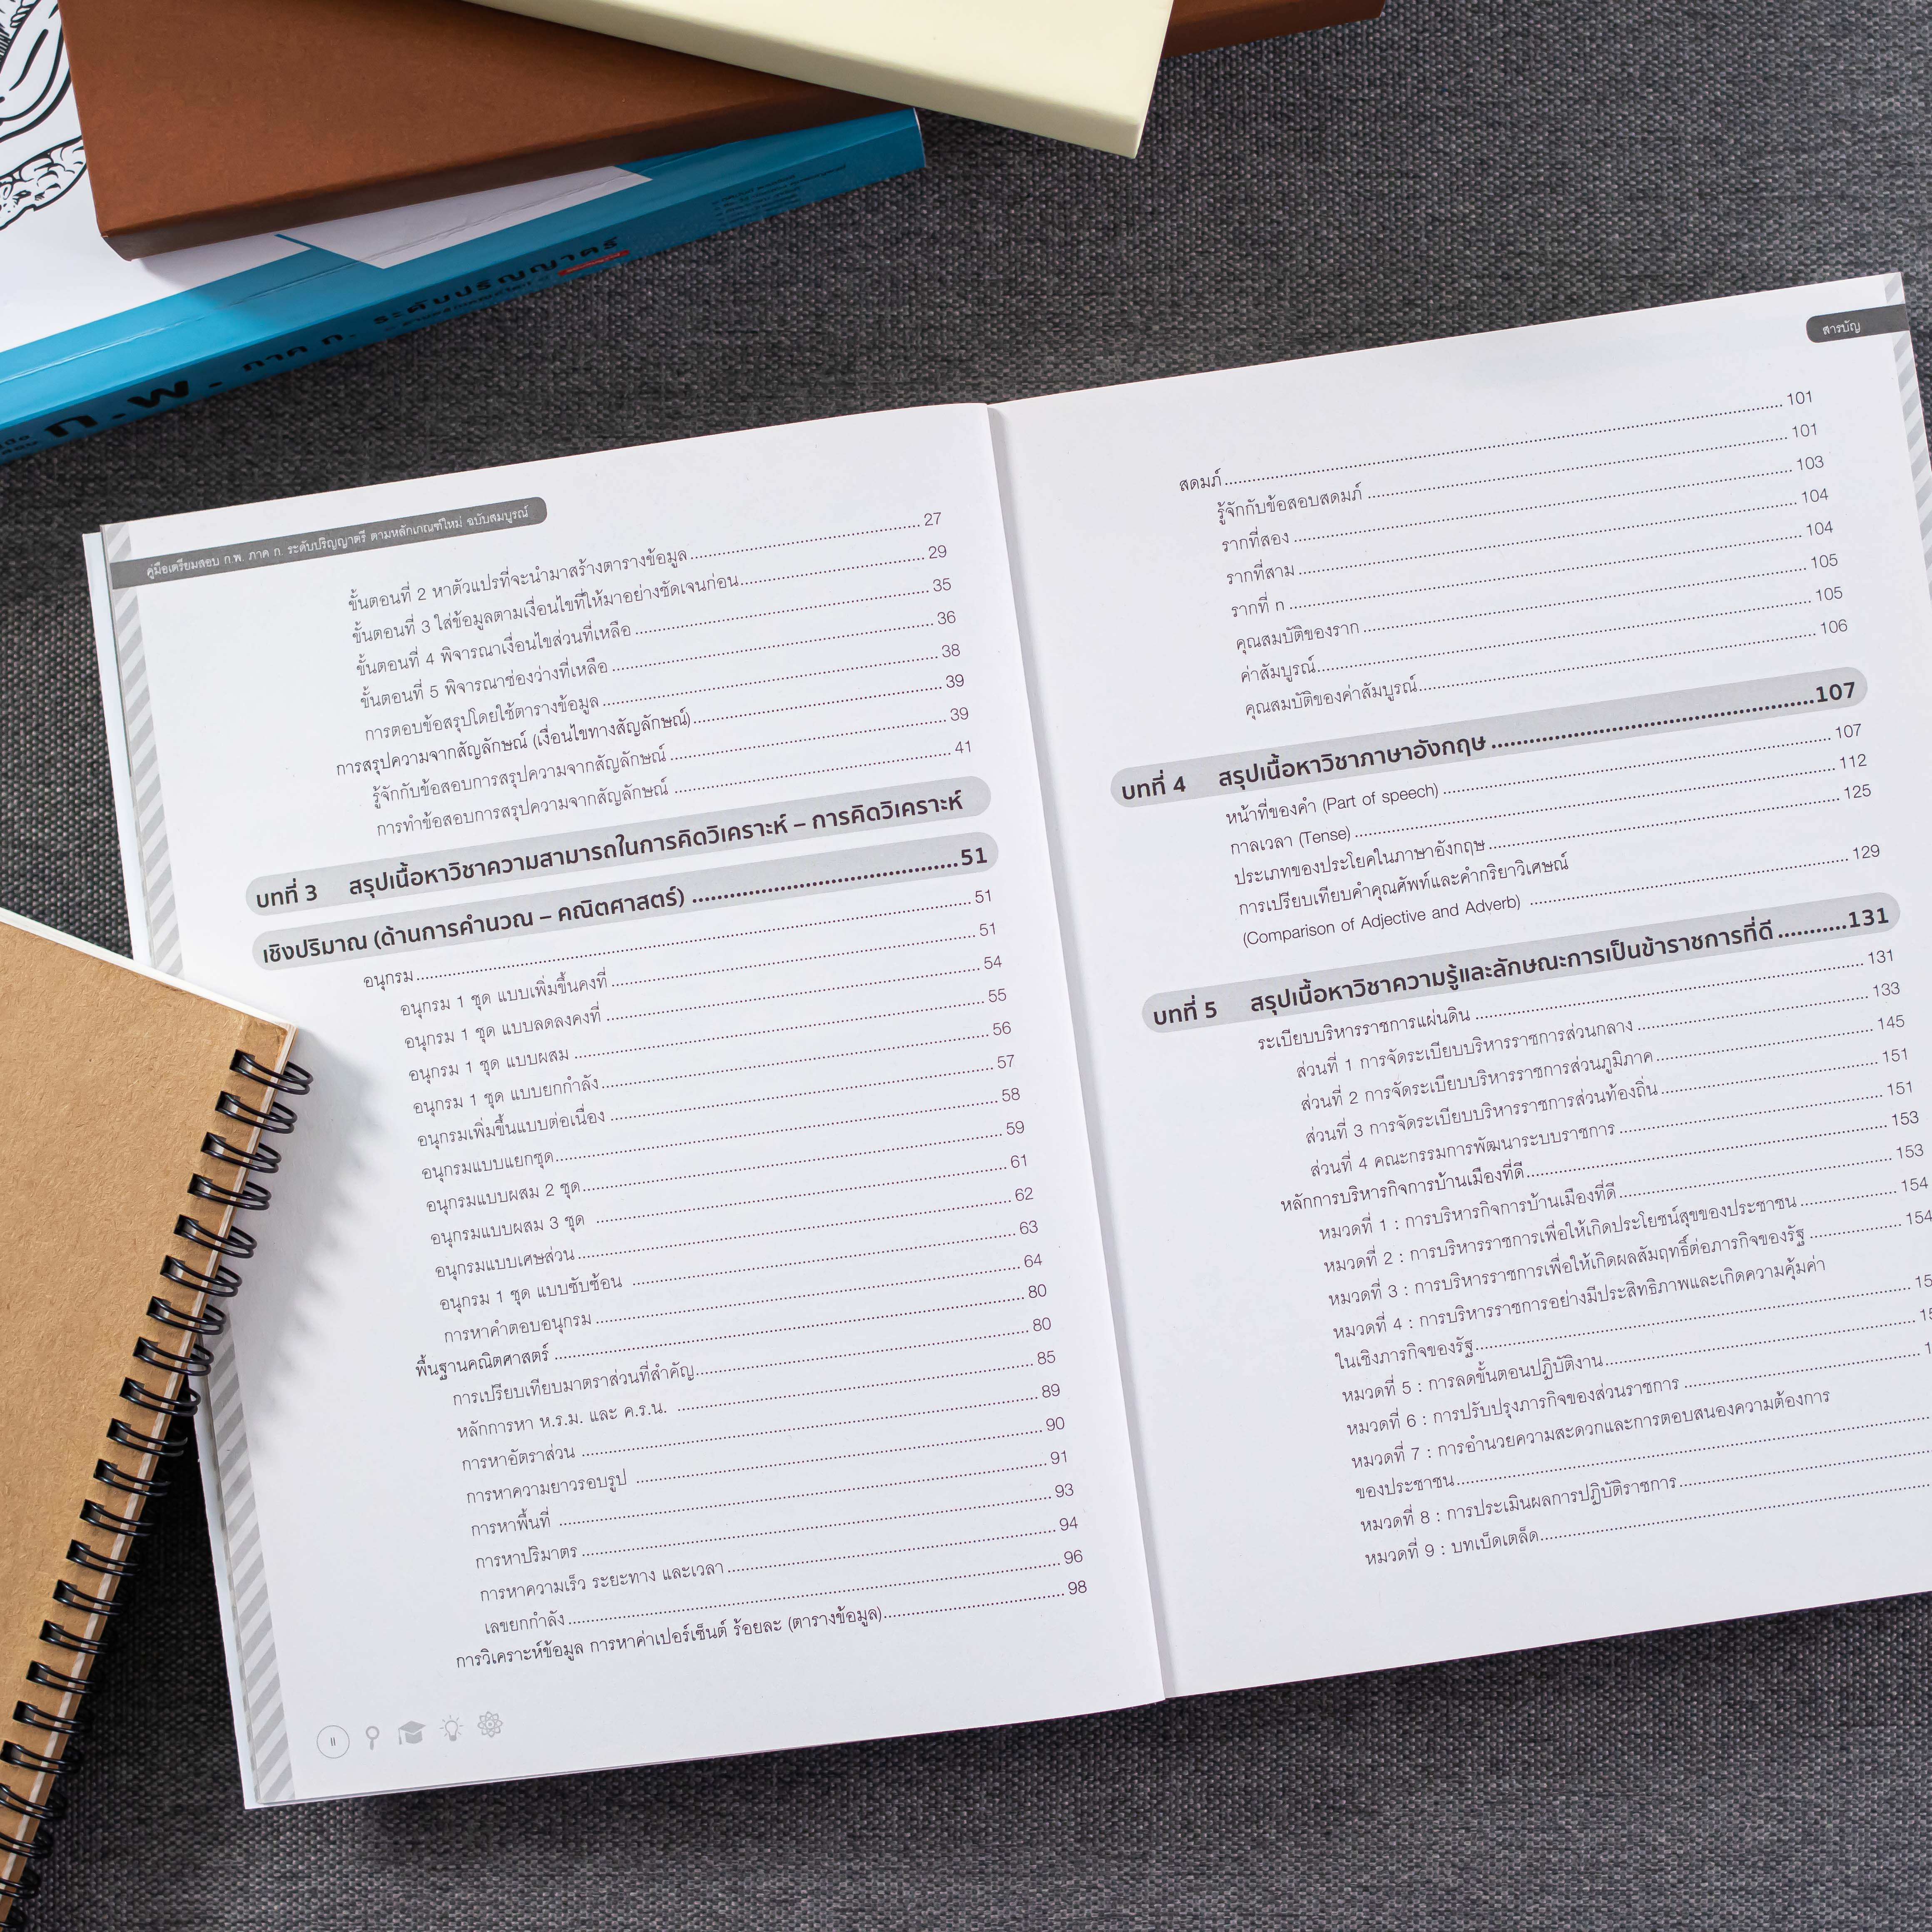 ก.พ. ภาค ก. ระดับปริญญาตรี
คู่มือเตรียมสอบ ก.พ. ภาค ก. ระดับปริญญาตรี ตามหลักเกณฑ์ใหม่ ฉบับสมบูรณ์
ขั้นตอนที่ 2 หาตัวแปรที่จะนำมาสร้างตารางข้อมูล 27
ขั้นตอนที่ 3 ใส่ข้อมูลตามเงื่อนไขที่ให้มาอย่างชัดเจนก่อน 29
ขั้นตอนที่ 4 พิจารณาเงื่อนไขส่วนที่เหลือ 35
ขั้นตอนที่ 5 พิจารณาช่องว่างที่เหลือ 36
การตอบข้อสรุปโดยใช้ตารางข้อมูล 38
การสรุปความจากสัญลักษณ์ (เงื่อนไขทางสัญลักษณ์) 39
รู้จักกับข้อสอบการสรุปความจากสัญลักษณ์ 39
การทำข้อสอบการสรุปความจากสัญลักษณ์ 41
บทที่ 3 สรุปเนื้อหาวิชาความสามารถในการคิดวิเคราะห์ – การคิดวิเคราะห์
เชิงปริมาณ (ด้านการคำนวณ – คณิตศาสตร์) 51
อนุกรม 51
อนุกรม 1 ชุด แบบเพิ่มขึ้นคงที่ 51
อนุกรม 1 ชุด แบบลดลงคงที่ 54
อนุกรม 1 ชุด แบบผสม 55
อนุกรม 1 ชุด แบบยกกำลัง 56
อนุกรมเพิ่มขึ้นแบบต่อเนื่อง 57
อนุกรมแบบแยกชุด 58
อนุกรมแบบผสม 2 ชุด 59
อนุกรมแบบผสม 3 ชุด 61
อนุกรมแบบเศษส่วน 62
อนุกรม 1 ชุด แบบซับซ้อน 63
การหาคำตอบอนุกรม 64
พื้นฐานคณิตศาสตร์ 80
การเปรียบเทียบมาตราส่วนที่สำคัญ 80
หลักการหา ห.ร.ม. และ ค.ร.น. 85
การหาอัตราส่วน 89
การหาความยาวรอบรูป 90
การหาพื้นที่ 91
การหาปริมาตร 93
การหาความเร็ว ระยะทาง และเวลา 94
เลขยกกำลัง 96
การวิเคราะห์ข้อมูล การหาค่าเปอร์เซ็นต์ ร้อยละ (ตารางข้อมูล) 98
II
สารบัญ
สดมภ์ 101
รู้จักกับข้อสอบสดมภ์ 101
รากที่สอง 103
รากที่สาม 104
รากที่ n 104
คุณสมบัติของราก 105
ค่าสัมบูรณ์ 105
คุณสมบัติของค่าสัมบูรณ์ 106
บทที่ 4 สรุปเนื้อหาวิชาภาษาอังกฤษ 107
หน้าที่ของคำ (Part of speech) 107
กาลเวลา (Tense) 112
ประเภทของประโยคในภาษาอังกฤษ 125
การเปรียบเทียบคำคุณศัพท์และคำกริยาวิเศษณ์
(Comparison of Adjective and Adverb) 129
บทที่ 5 สรุปเนื้อหาวิชาความรู้และลักษณะการเป็นข้าราชการที่ดี 131
ระเบียบบริหารราชการแผ่นดิน 131
ส่วนที่ 1 การจัดระเบียบบริหารราชการส่วนกลาง 133
ส่วนที่ 2 การจัดระเบียบบริหารราชการส่วนภูมิภาค 145
ส่วนที่ 3 การจัดระเบียบบริหารราชการส่วนท้องถิ่น 151
ส่วนที่ 4 คณะกรรมการพัฒนาระบบราชการ 151
หลักการบริหารกิจการบ้านเมืองที่ดี 153
หมวดที่ 1 : การบริหารกิจการบ้านเมืองที่ดี 153
หมวดที่ 2 : การบริหารราชการเพื่อให้เกิดประโยชน์สุขของประชาชน 154
หมวดที่ 3 : การบริหารราชการเพื่อให้เกิดผลสัมฤทธิ์ต่อภารกิจของรัฐ 154
หมวดที่ 4 : การบริหารราชการอย่างมีประสิทธิภาพและเกิดความคุ้มค่า
ในเชิงภารกิจของรัฐ
หมวดที่ 5 : การลดขั้นตอนปฏิบัติงาน
หมวดที่ 6 : การปรับปรุงภารกิจของส่วนราชการ
หมวดที่ 7 : การอำนวยความสะดวกและการตอบสนองความต้องการ
ของประชาชน
หมวดที่ 8 : การประเมินผลการปฏิบัติราชการ
หมวดที่ 9 : บทเบ็ดเตล็ด